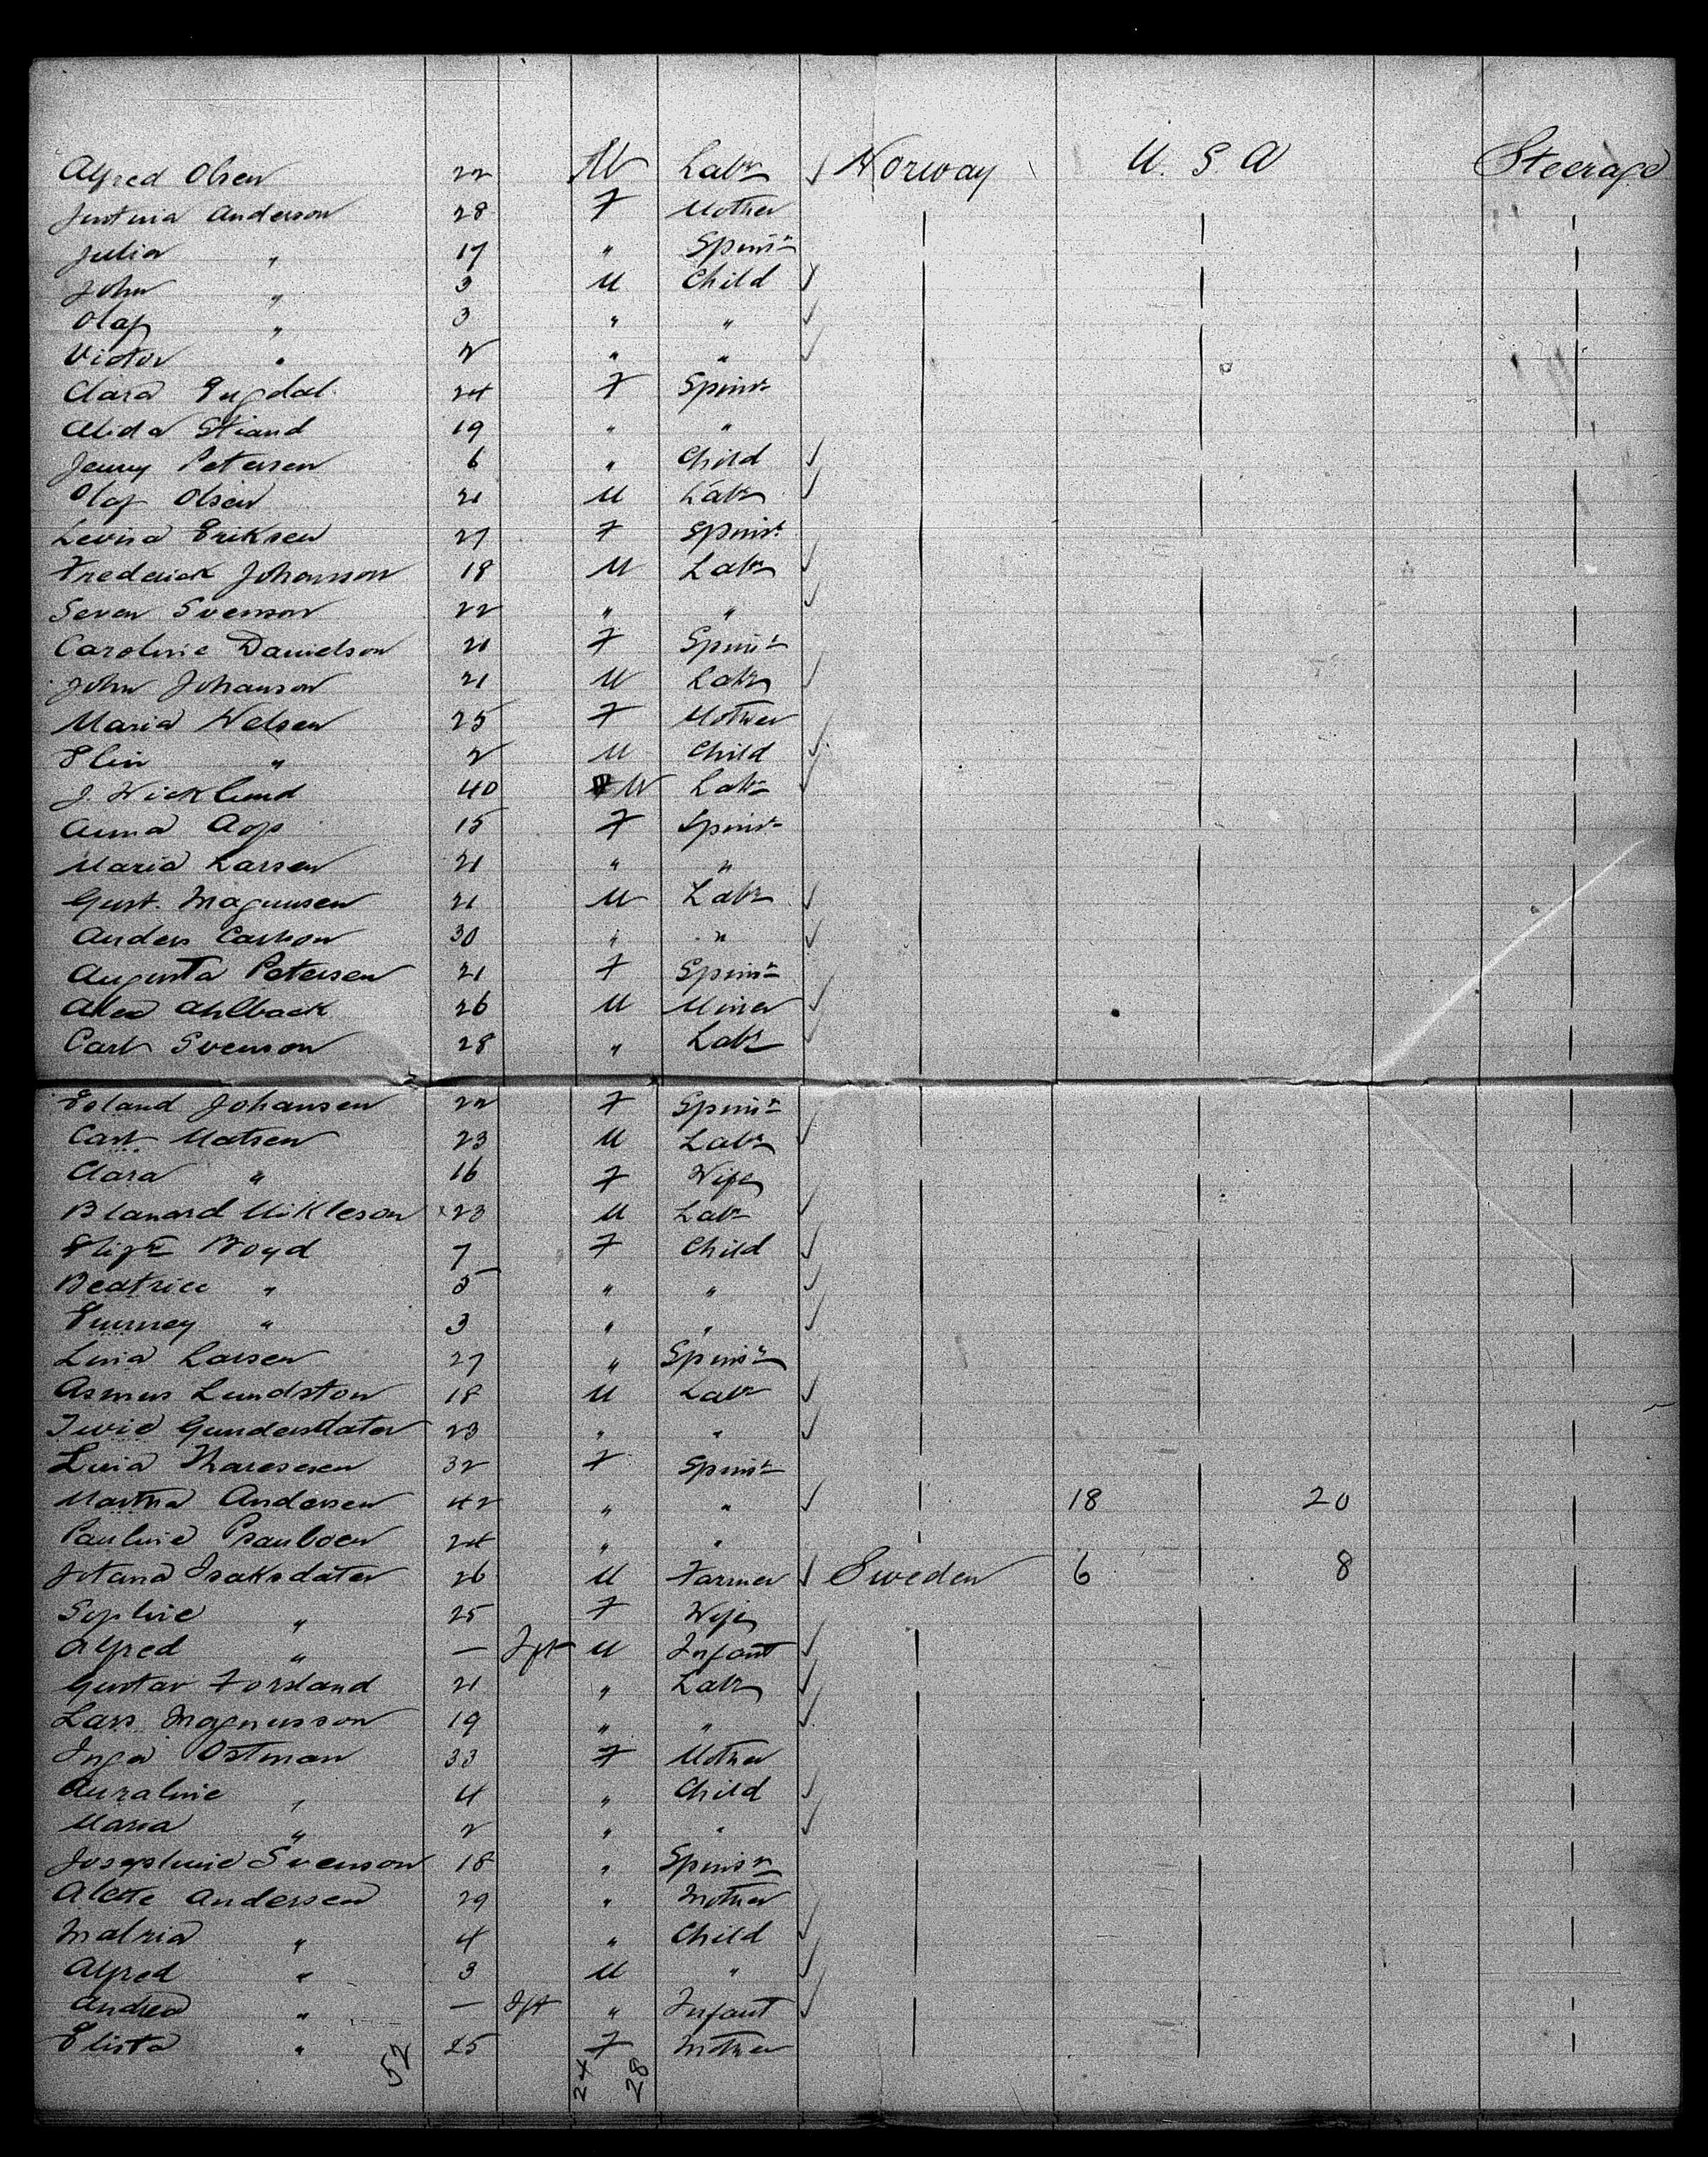 Alfred Olsen 22 M Labr ✓ Norway U. S A Steerage
Justina Anderson 28 F Mother
Julia " 17 " Spinsr
John " 3 M Child ✓
Olaf " 3 " " ✓
Victor " 2 " " ✓
Clara Engdal 24 F Spinsr
Alida Strand 19 " "
Jenny Petersen 6 " Child ✓
Olaf Olsen 21 M Labr ✓
Levisa Eriksen 27 F Spinsr
Frederick Johansson 18 M Labr ✓
Seven Svenson 22 " " ✓
Caroline Danielson 20 F Spinsr
John Johanson 21 M Labr ✓
Maria Nelsen 25 F Mother
Elin " 2 M Child ✓
J. Wicklund 40 M Labr ✓
Anna 15 F Spinsr
Maria Larsen 21 " "
Gust. Magnusen 21 M Labr ✓
Anders Carlson 30 " " ✓
Augusta Petersen 21 F Spinsr
Alex Ahlback 26 M Miner ✓
Carl Svenson 28 " Labr ✓
Johansen 22 F Spinsr
Carl Matsen 23 M Labr ✓
Clara " 16 F Wife
Mikleson 23 M Labr ✓
Elizth Boyd 7 F Child ✓
Beatrice " 5 " " ✓
3 " " ✓
Lina Larsen 27 " Spinsr
Asmus Lundston 18 M Labr ✓
23 " " ✓
Lina 32 F Spinsr
Martha Andersen 42 " " ✓ 18 20
Pauline 24 " "
Isaksdater 26 M Farmer ✓ Sweden 6 8
Sophie " 25 F Wife
Alfred " — Inft M Infant ✓
Gustav Forsland 21 " Labr ✓
Lars Magnusson 19 " " ✓
Inga Ostman 33 F Mother
Auraline " 4 " Child ✓
Maria " 2 " " ✓
Josephine Svenson 18 " Spinsr
Alette Andersen 29 " Mother
Malria " 4 " Child ✓
Alfred " 3 M " ✓
Andrea " — Inft " Infant ✓
Elista " 25 F Mother
52 24 28